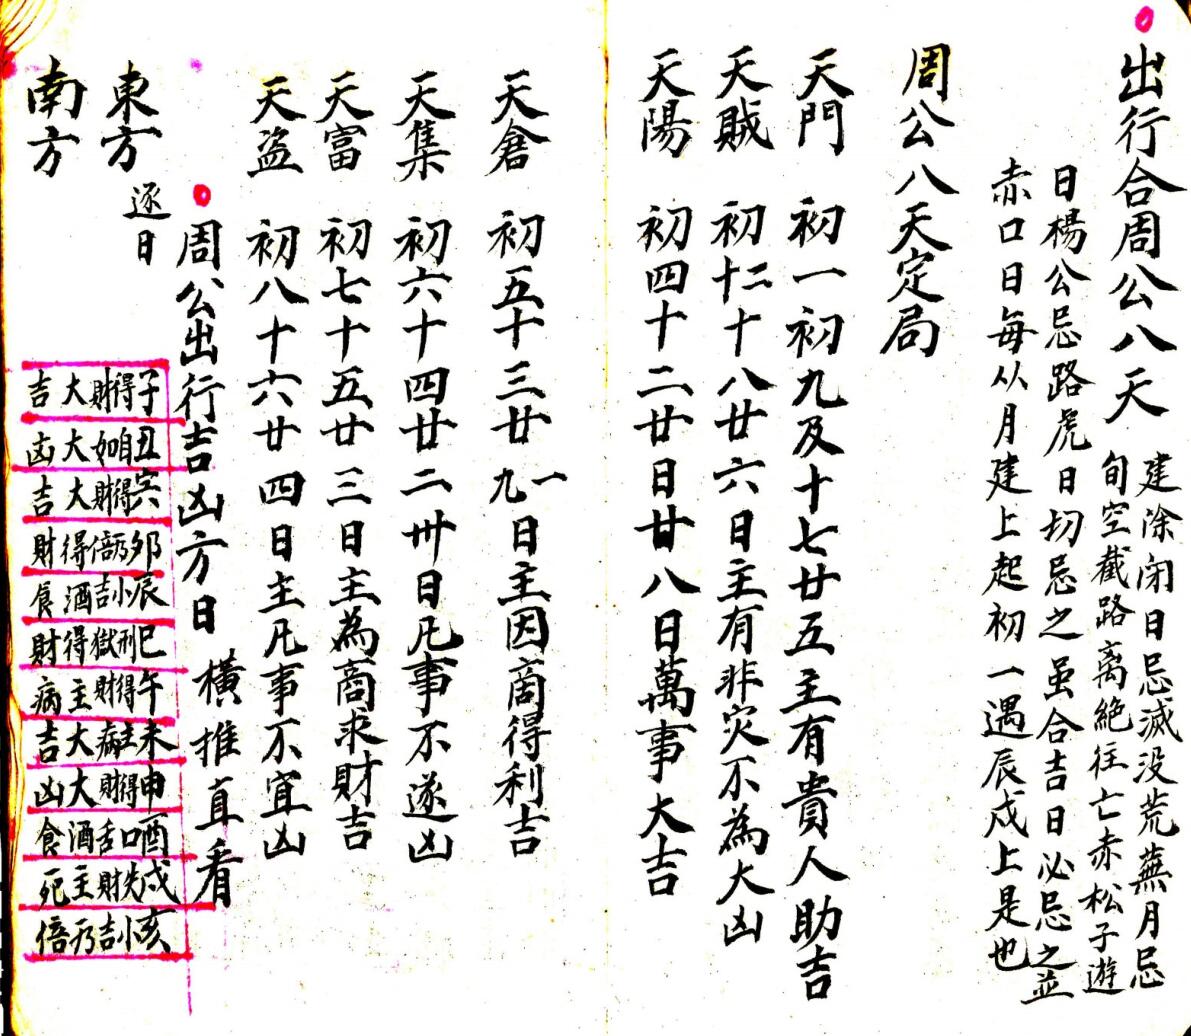 出行合周公八天
建除闭日忌滅没荒蕪月忌
旬空截路离絶往亡赤松子遊
日楊公忌路虎日切忌之虽合吉日必忌之並
赤口日每从月建上起初一遇辰戍上是也
周公八天定局
天門 初一初九及十七廿五主有貴人助吉
天賊 初二十八廿六日主有非灾不為大凶
天陽 初四十二廿日廿八日萬事大吉
天倉 初五十三廿一九日主因商得利吉
天集 初六十四廿二卅日凡事不遂凶
天富 初七十五廿三日主為商求財吉
天盗 初八十六廿四日主凡事不宜凶
周公出行吉凶方日 橫推直看
逐日
子丑寅卯辰巳午未申酉戍亥
東方
得財 自如 得財 乃倍 小吉 刑獄 得財 主病 得財 口舌 失財 小吉
南方
大吉 大凶 大吉 得財 酒食 得財 主病 大吉 大凶 酒食 主死 乃倍